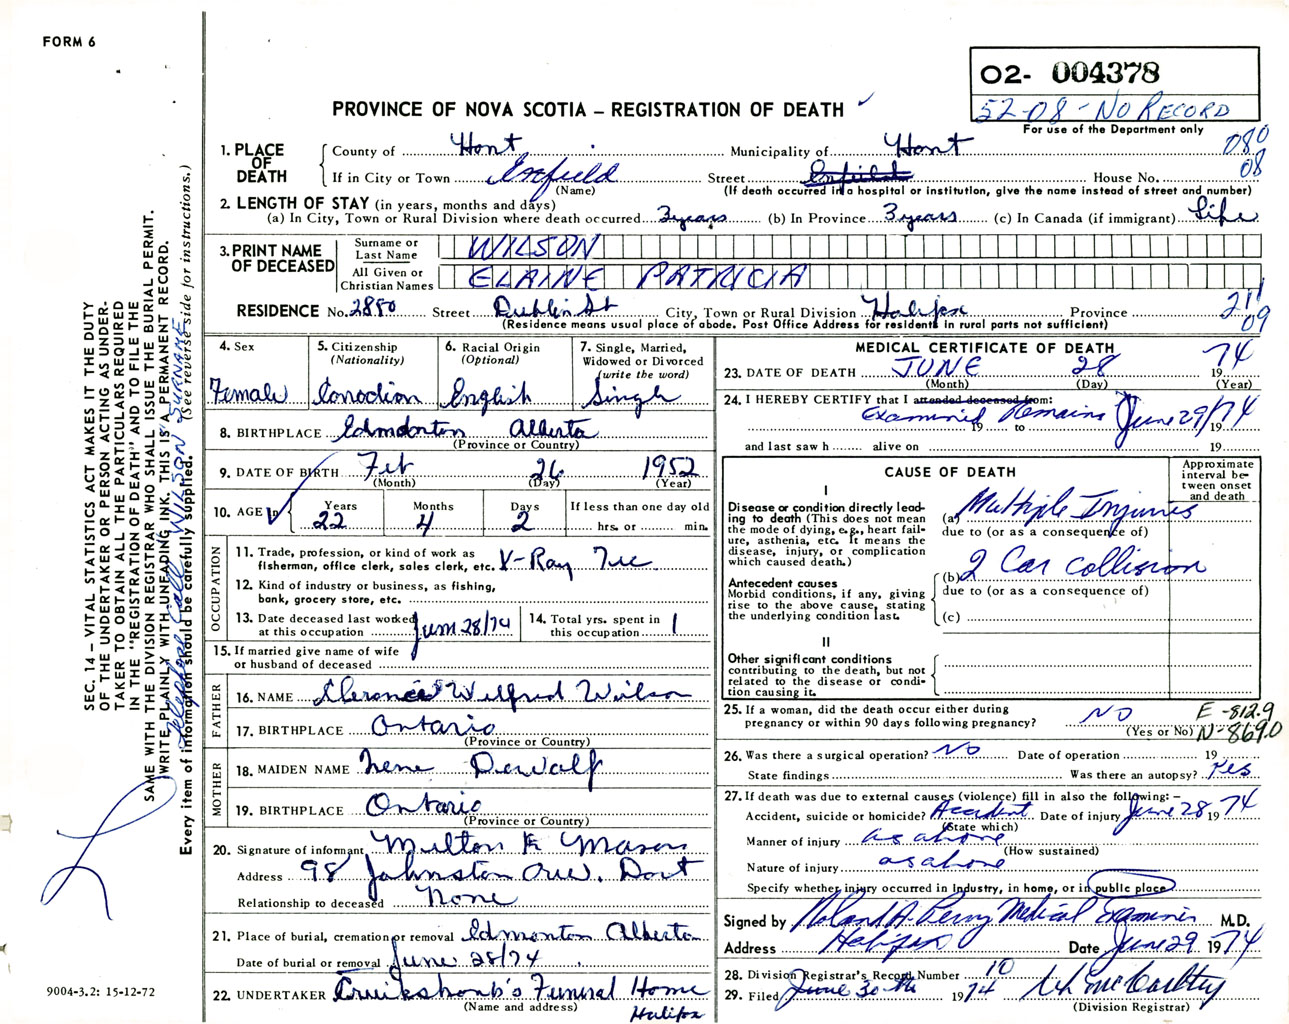 FORM 6
02- 004378
52-08 - NO RECORD
For use of the Department only
PROVINCE OF NOVA SCOTIA – REGISTRATION OF DEATH
080
08
1. PLACE OF DEATH
County of Hant Municipality of Hant
If in City or Town Enfield Street Enfield House No.
(Name) (If death occurred in a hospital or institution, give the name instead of street and number)
2. LENGTH OF STAY (in years, months and days)
(a) In City, Town or Rural Division where death occurred 3 years (b) In Province 3 years (c) In Canada (if immigrant) Life
3. PRINT NAME OF DECEASED
Surname or Last Name WILSON
All Given or Christian Names ELAINE PATRICIA
211
09
RESIDENCE No. 2880 Street Dublin St City, Town or Rural Division Halifax Province
(Residence means usual place of abode. Post Office Address for residents in rural parts not sufficient)
4. Sex Female
5. Citizenship (Nationality) Canadian
6. Racial Origin (Optional) English
7. Single, Married, Widowed or Divorced (write the word) Single
8. BIRTHPLACE Edmonton Alberta
(Province or Country)
9. DATE OF BIRTH Feb 26 1952
(Month) (Day) (Year)
10. AGE in
Years Months Days If less than one day old
22 4 2 hrs. or min.
OCCUPATION
11. Trade, profession, or kind of work as
fisherman, office clerk, sales clerk, etc. X-Ray Tec
12. Kind of industry or business, as fishing,
bank, grocery store, etc.
13. Date deceased last worked
at this occupation June 28/74
14. Total yrs. spent in
this occupation 1
15. If married give name of wife
or husband of deceased
FATHER
16. NAME Clarence Wilfred Wilson
17. BIRTHPLACE Ontario
(Province or Country)
MOTHER
18. MAIDEN NAME Irene Dewolf
19. BIRTHPLACE Ontario
(Province or Country)
20. Signature of informant Milton K Mason
Address 98 Johnston Ave. Dart
Relationship to deceased None
21. Place of burial, cremation or removal Edmonton Alberta
Date of burial or removal June 28/74
22. UNDERTAKER Cruikshank's Funeral Home
(Name and address) Halifax
MEDICAL CERTIFICATE OF DEATH
23. DATE OF DEATH JUNE 28 1974
(Month) (Day) (Year)
24. I HEREBY CERTIFY that I attended deceased from:
Examined Remains June 29/74
19 to
and last saw h alive on 19
CAUSE OF DEATH
Approximate interval between onset and death
I
Disease or condition directly leading to death (This does not mean the mode of dying, e.g., heart failure, asthenia, etc. It means the disease, injury, or complication which caused death.)
(a) Multiple Injuries
due to (or as a consequence of)
Antecedent causes
Morbid conditions, if any, giving rise to the above cause, stating the underlying condition last.
(b) 2 Car collision
due to (or as a consequence of)
(c)
II
Other significant conditions
contributing to the death, but not related to the disease or condition causing it.
25. If a woman, did the death occur either during
pregnancy or within 90 days following pregnancy? NO
(Yes or No)
E-812.9
N-869.0
26. Was there a surgical operation? NO Date of operation 19
State findings Was there an autopsy? Yes
27. If death was due to external causes (violence) fill in also the following: –
Accident, suicide or homicide? Accident Date of injury June 28 1974
(State which)
Manner of injury as above
(How sustained)
Nature of injury as above
Specify whether injury occurred in industry, in home, or in public place
Signed by Roland A. Perry Medical Examiner M.D.
Address Halifax Date June 29 1974
28. Division Registrar's Record Number 10
29. Filed June 30th 1974
(Division Registrar)
SEC. 14 – VITAL STATISTICS ACT MAKES IT THE DUTY
OF THE UNDERTAKER OR PERSON ACTING AS UNDER-
TAKER TO OBTAIN ALL THE PARTICULARS REQUIRED
IN THE "REGISTRATION OF DEATH" AND TO FILE THE
SAME WITH THE DIVISION REGISTRAR WHO SHALL ISSUE THE BURIAL PERMIT.
WRITE PLAINLY WITH UNFADING INK. THIS IS A PERMANENT RECORD.
Every item of information should be carefully supplied. (See reverse side for instructions.)
Telephone Call WILSON SURNAME
9004-3.2: 15-12-72